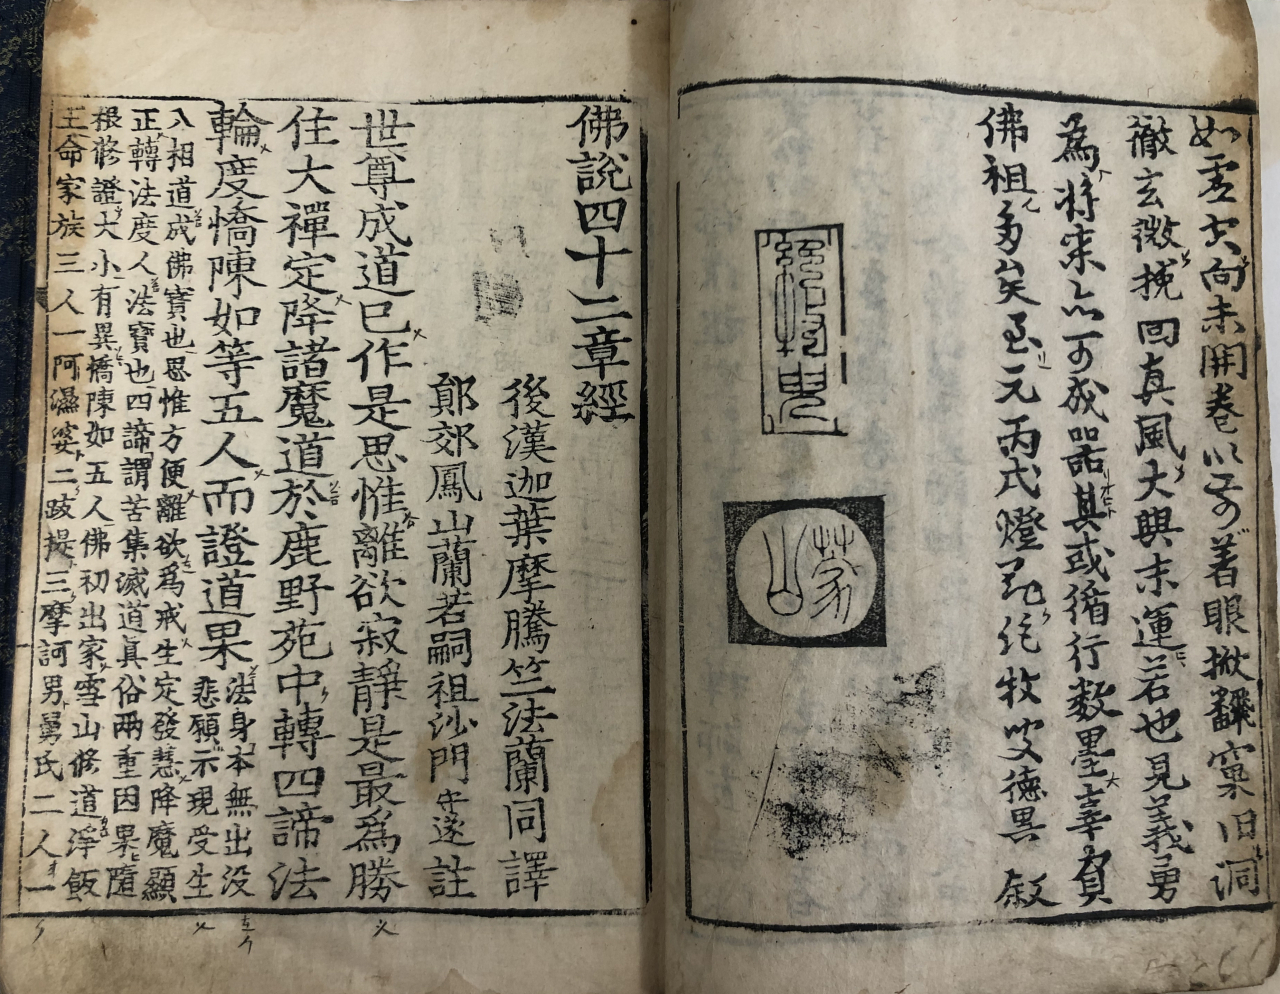 如向未開卷以前著眼掀飜窠旧洞
徹玄微挽回真風大興末運若也見義勇
為将来亦可成器其或循行数墨辜負
佛祖多矣至元丙戌燈牧叟德異叙
蒙山
佛說四十二章經
後漢迦葉摩騰竺法蘭同譯
鄮郊鳳山蘭若嗣祖沙門守遂註
世尊成道已作是思惟離欲寂靜是最為勝
住大禪定降諸魔道於鹿野苑中轉四諦法
輪度憍陳如等五人而證道果法身本無出没
悲願示現受生
八相道成佛寶也思惟方便離欲為戒生定發慧降魔顯
正轉法度人法寶也四諦謂苦集滅道真俗兩重因果隨
根修證大小有異橋陳如五人佛初出家雪山修道淨飯
王命家族三人一阿濕婆二跋提三摩訶男舅氏二人一